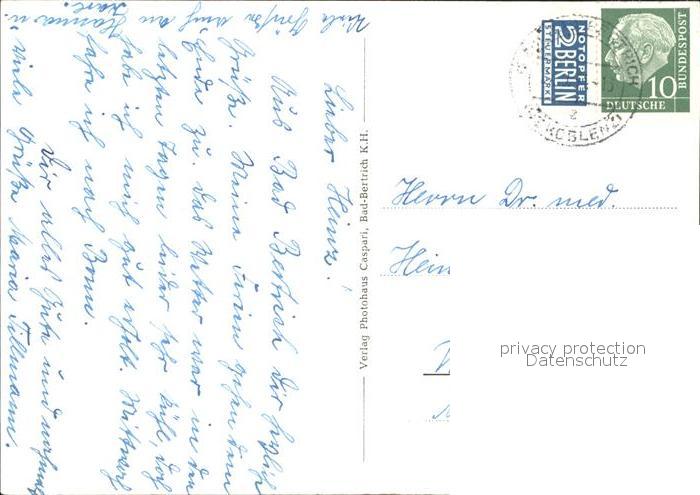 Lieber Heinz!
Aus Bad Bertrich Dir herzlich
Grüße. Meine Ferien gehen dem
Ende zu. Das Wetter war in den
letzten Tagen leider sehr kühl, doch
habe ich mich gut erholt. Mittwoch
fahre ich nach Bonn.
Dir alles Gute und
viele Grüße Maria Tillmann.
Viele Grüße auch an
Hanna u.
Karl.
Verlag Photohaus Caspari, Bad-Bertrich K.H.
NOTOPFER
2 BERLIN
STEUERMARKE
10
DEUTSCHE
BUNDESPOST
Herrn Dr. med.
privacy protection
Datenschutz